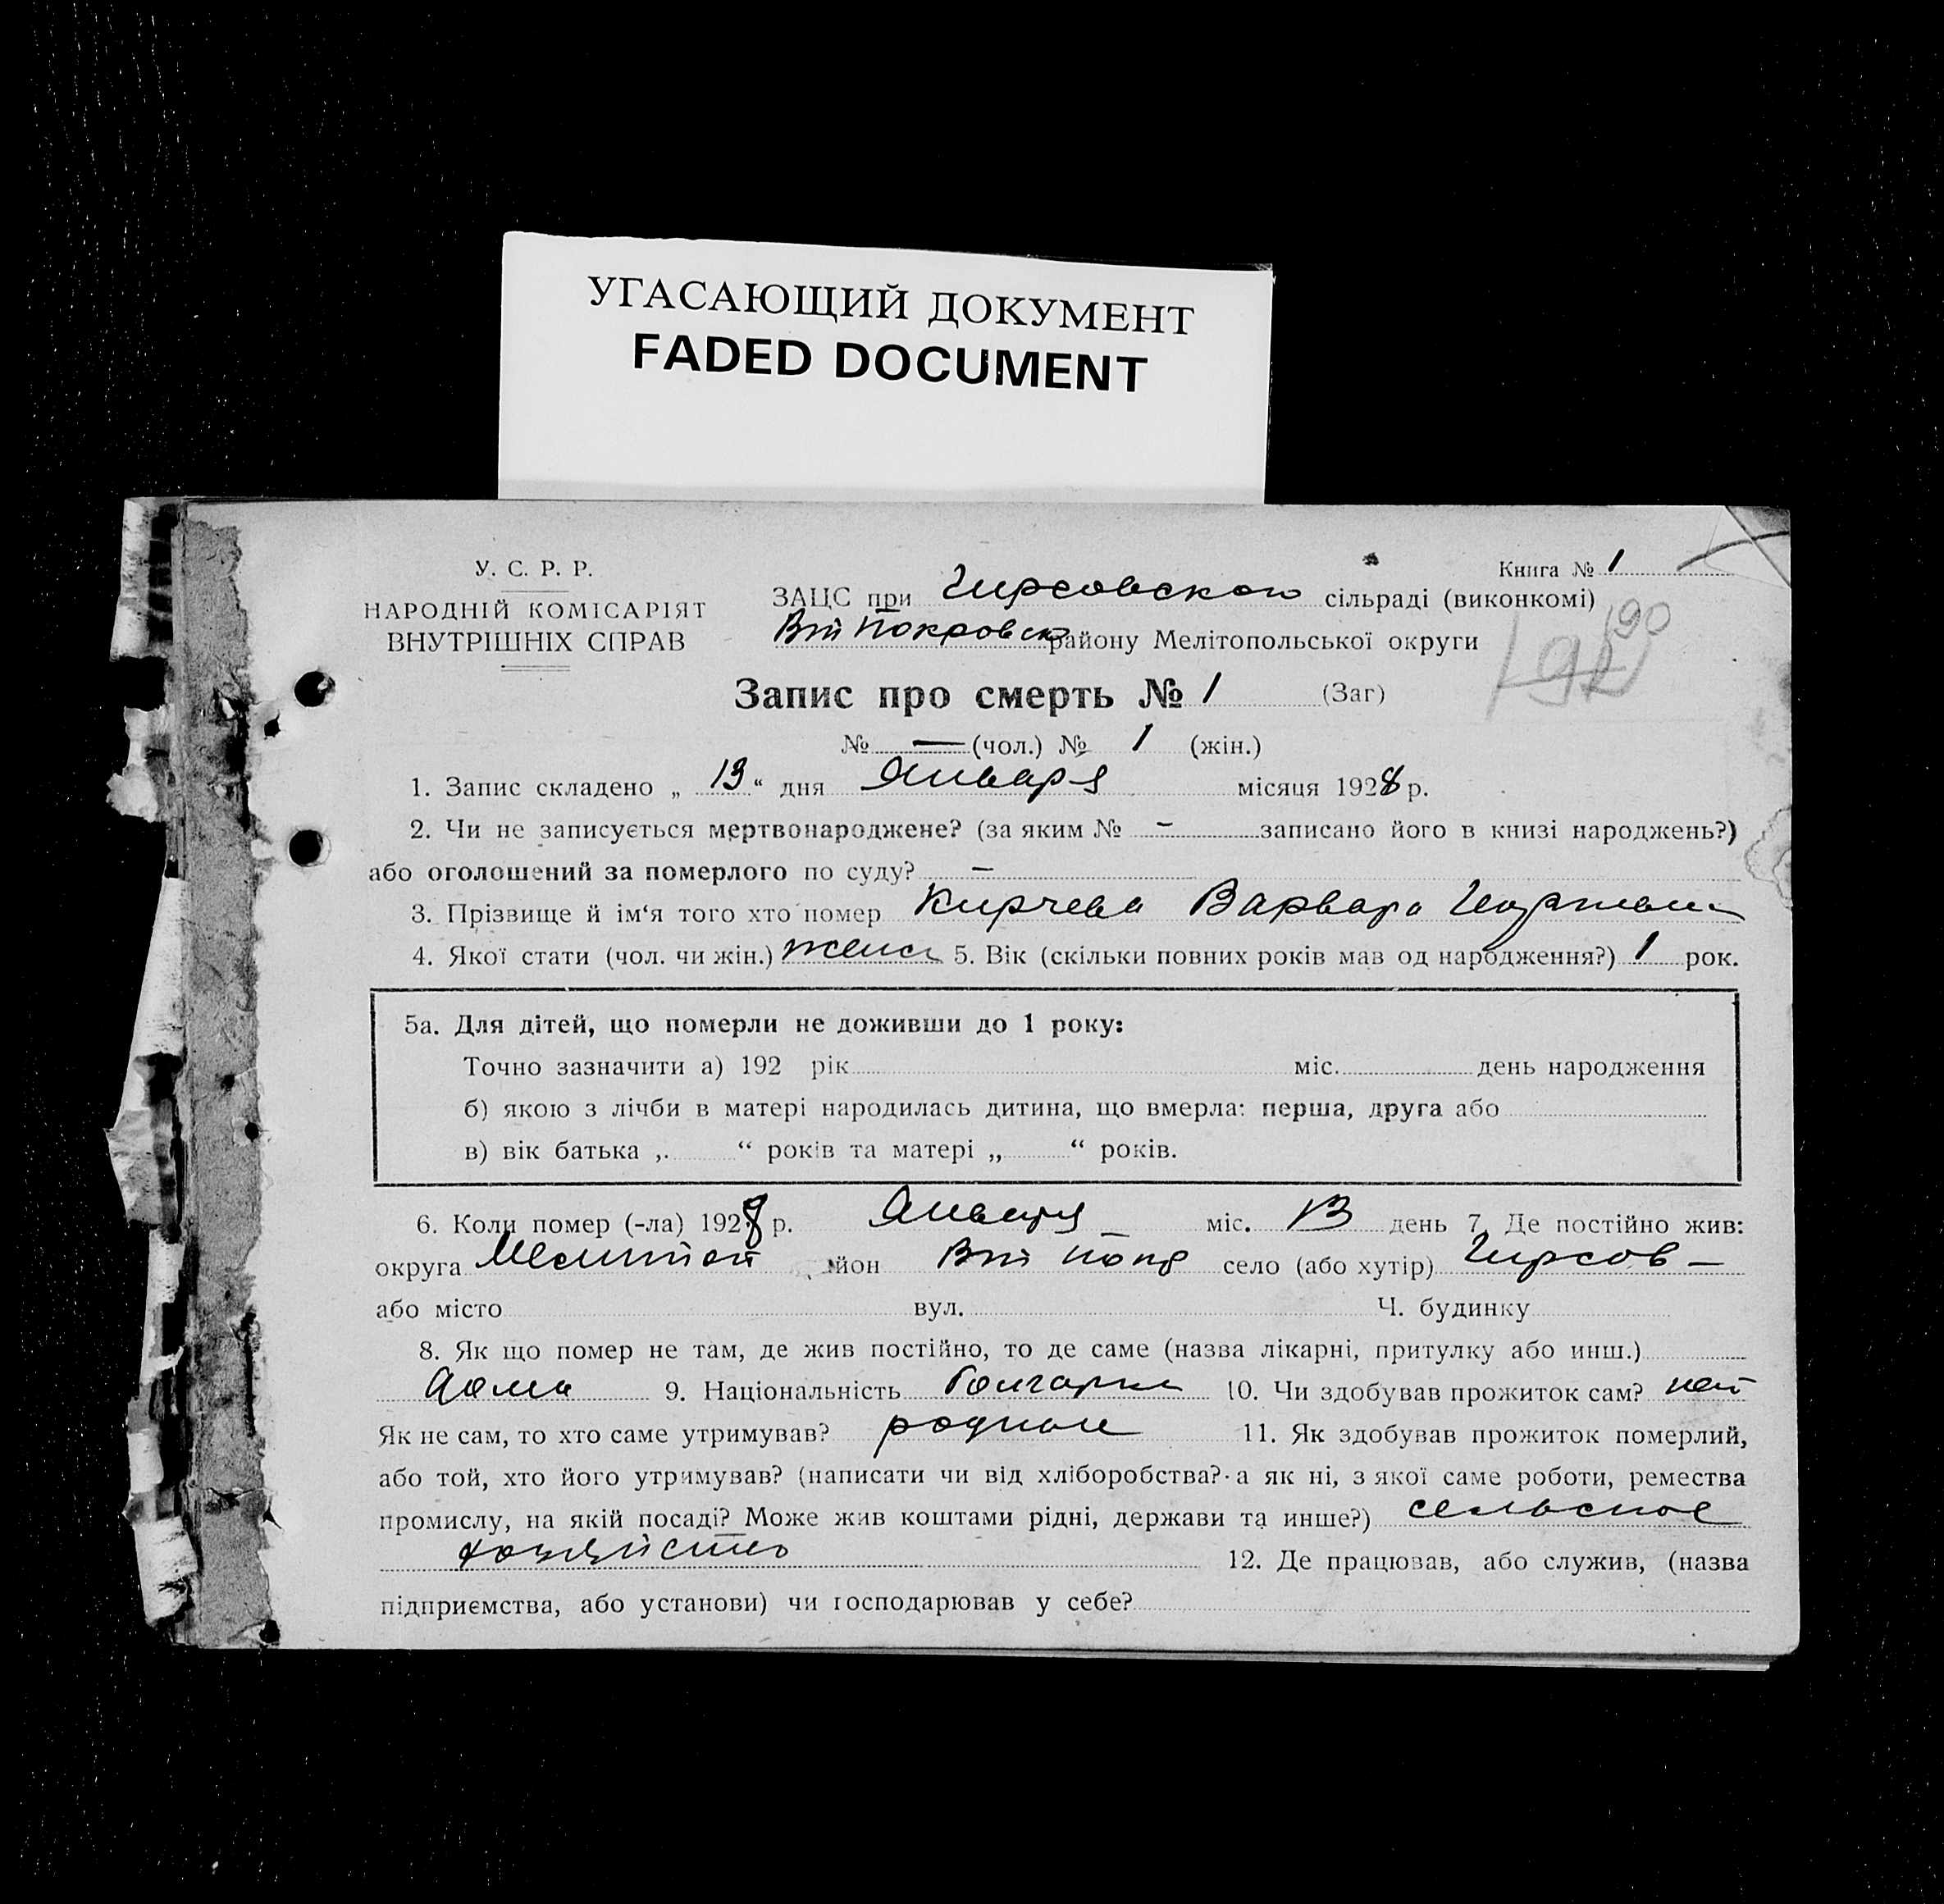 УГАСАЮЩИЙ ДОКУМЕНТ
FADED DOCUMENT
У. С. Р. Р.
НАРОДНІЙ КОМІСАРІЯТ
ВНУТРІШНІХ СПРАВ
Книга № 1
ЗАЦС при Гирсовского сільраді (виконкомі)
190
Вт Покровск району Мелітопольської округи
Запис про смерть № 1 (Заг)
№ — (чол.) № 1 (жін.)
1. Запис складено „ 13 “ дня Января місяця 1928 р.
2. Чи не записується мертвонароджене? (за яким № – записано його в книзі народжень?)
або оголошений за померлого по суду? –
3. Прізвище й ім‘я того хто помер Кирчева Варвара
4. Якої стати (чол. чи жін.) женск 5. Вік (скільки повних років мав од народження?) 1 рок.
5а. Для дітей, що померли не доживши до 1 року:
Точно зазначити а) 192 рік міс. день народження
б) якою з лічби в матері народилась дитина, що вмерла: перша, друга або
в) вік батька ,. “ років та матері „ “ років.
6. Коли помер (-ла) 1928 р. Января міс. 13 день 7. Де постійно жив:
округа Мелитоп йон Вт Покр село (або хутір) Гирсов –
або місто вул. Ч. будинку
8. Як що помер не там, де жив постійно, то де саме (назва лікарні, притулку або инш.)
дома 9. Національність болгарка 10. Чи здобував прожиток сам? нет
Як не сам, то хто саме утримував? родные 11. Як здобував прожиток померлий,
або той, хто його утримував? (написати чи від хліборобства? а як ні, з якої саме роботи, ремества
промислу, на якій посаді? Може жив коштами рідні, держави та инше?) сельское
хозяйство 12. Де працював, або служив, (назва
підприємства, або установи) чи господарював у себе?